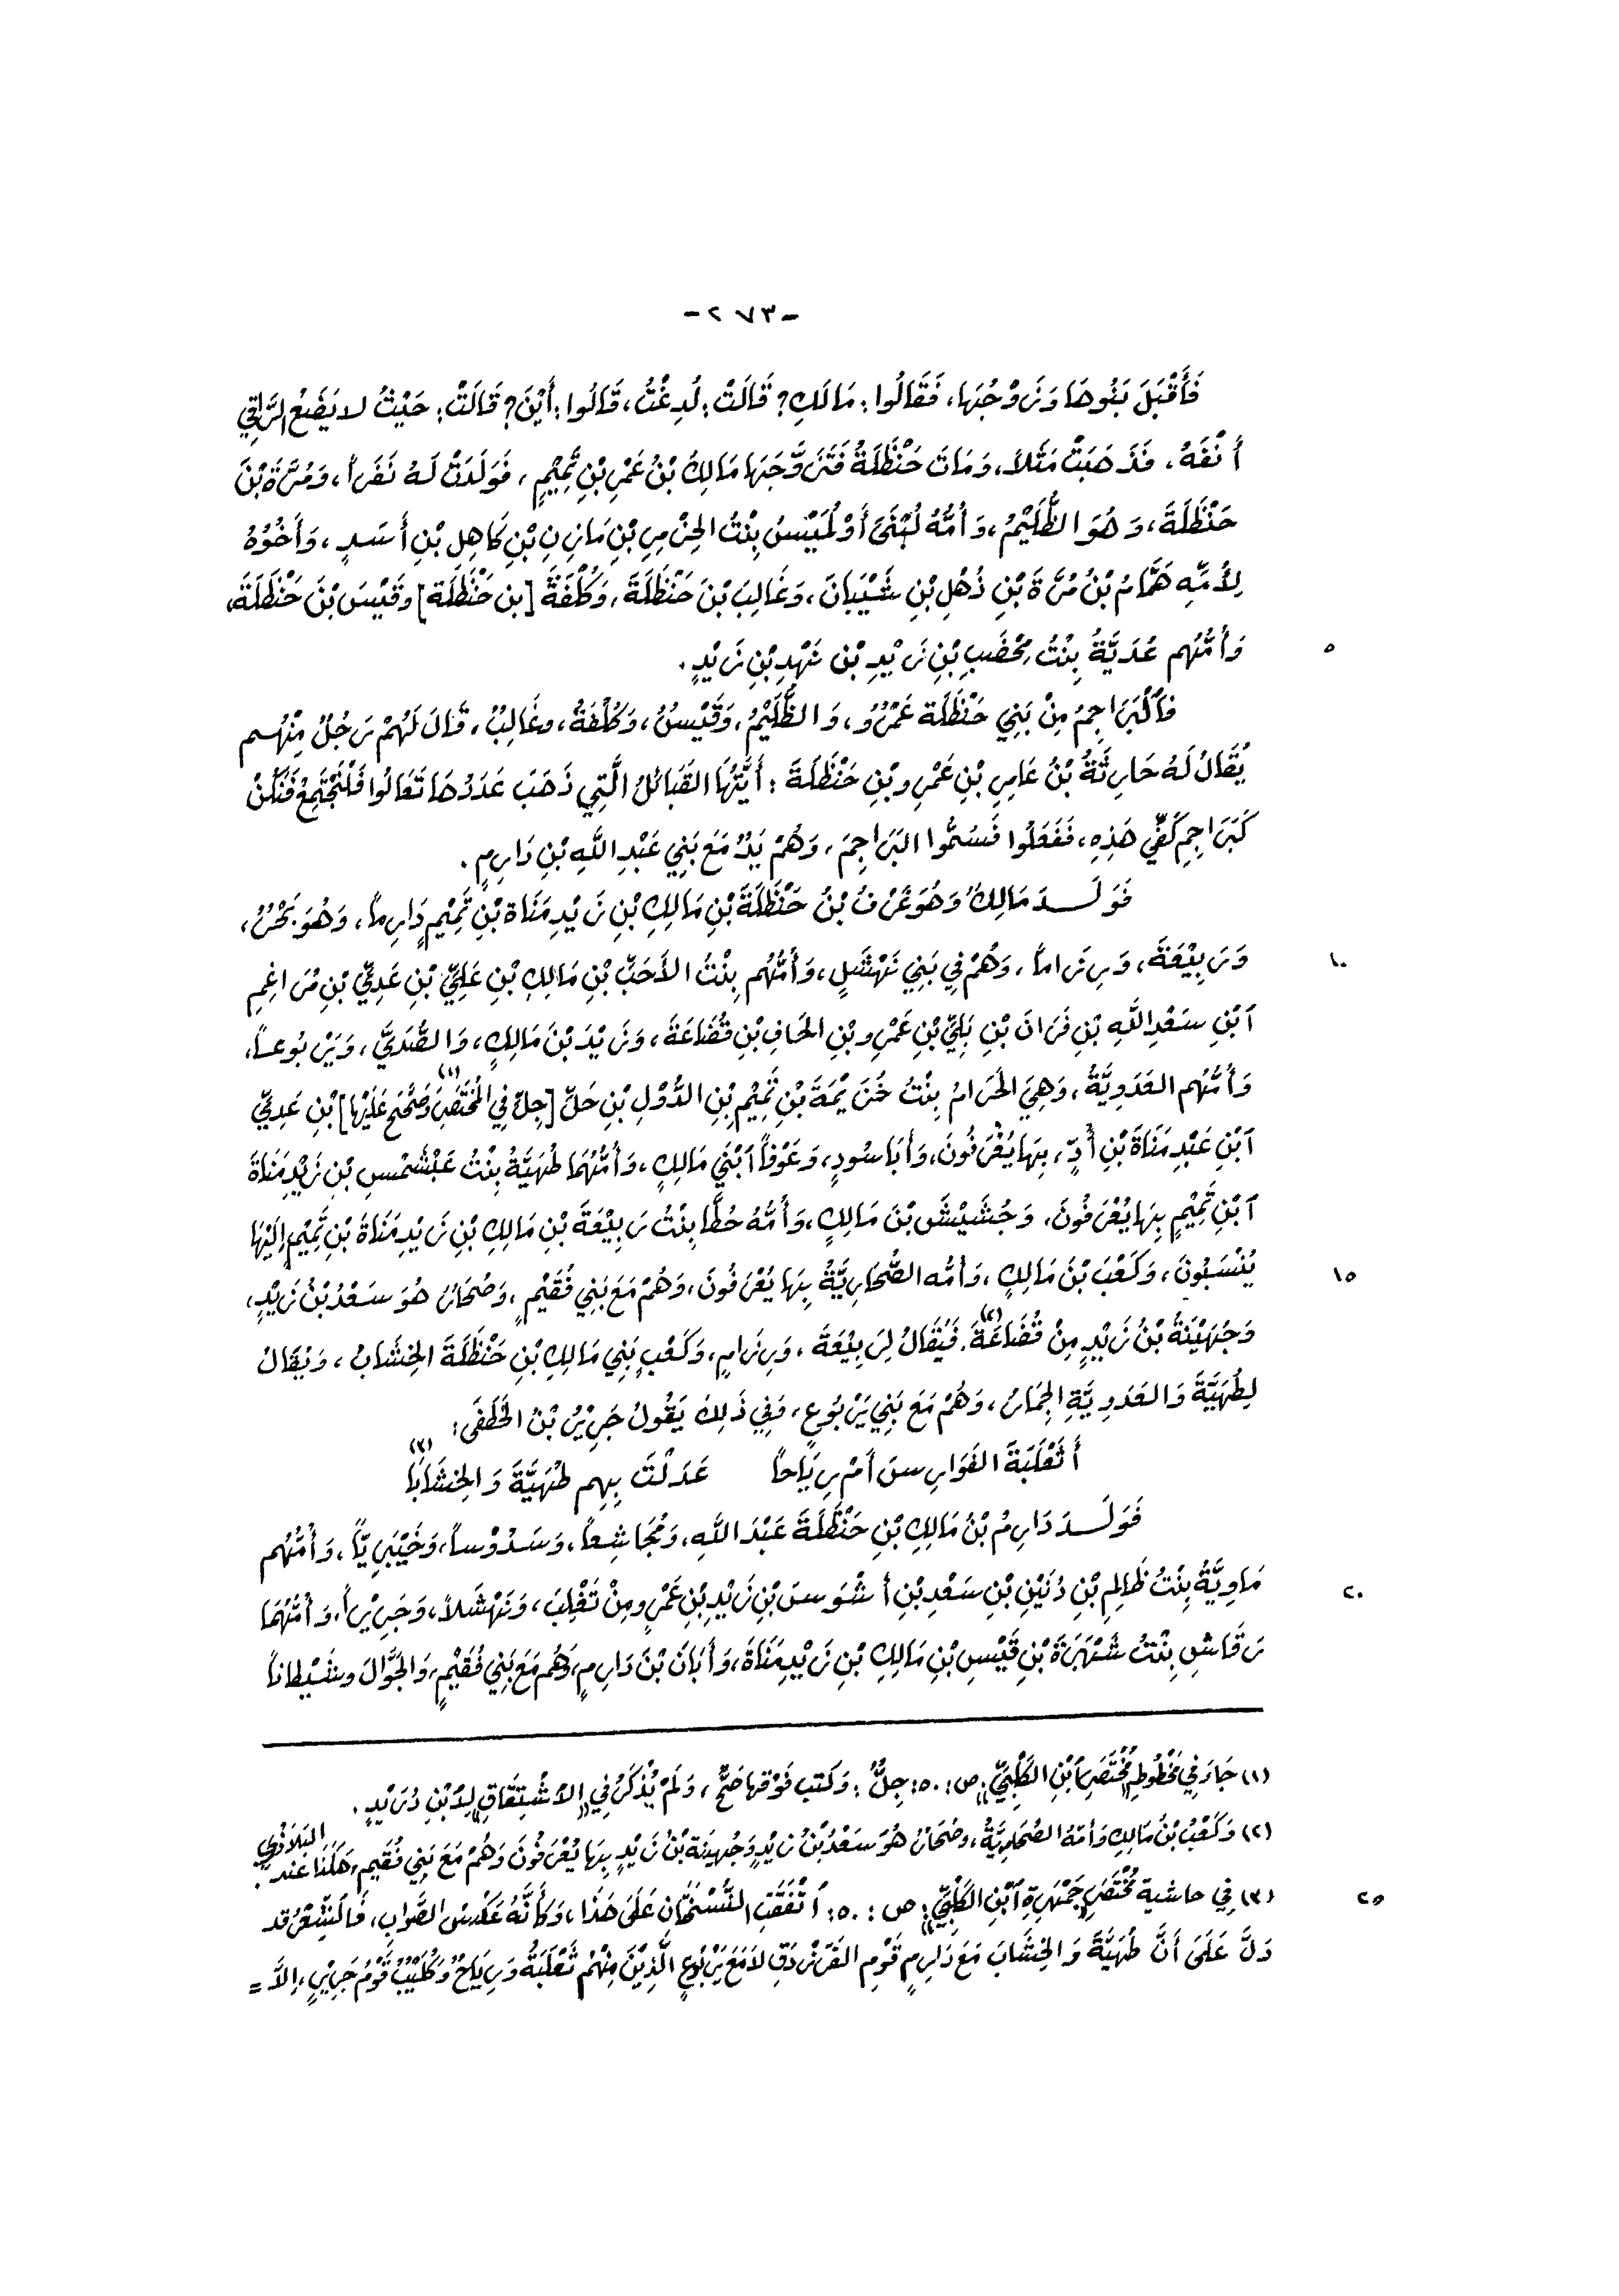 -٢٧٣-
فَأَقْبَلَ بَنُوهَا وَزَوْجُهَا، فَقَالُوا: مَالَكِ؟ قَالَتْ: لُدِغْتُ، قَالُوا: أَيْنَ؟ قَالَتْ: حَيْثُ لا يَضَعُ الرَّاقِي
أَنْفَهُ. فَذَهَبَتْ مَثَلاً، وَمَاتَ حَنْظَلَةُ فَتَزَوَّجَهَا مَالِكُ بْنُ عَمْرِ بْنِ تَمِيْمٍ، فَوَلَدَتْ لَهُ نَفَراً، وَمُرَّةَ بْنَ
حَنْظَلَةَ، وَهُوَ الظُّلَيْمُ، وَأُمُّهُ لُبْنَىَ أَوْ لَمِيْسُ بِنْتُ الحِزْمِرِ بْنِ مَازِنِ بْنِ كَاهِلِ بْنِ أَسَدٍ، وَأَخُوْهُ
لِأُمِّهِ هَمَّامُ بْنُ مُرَّةَ بْنِ ذُهْلِ بْنِ شَيْبَانَ، وَغَالِبَ بْنَ حَنْظَلَةَ، وَكُلْفَةَ [بن حَنْظَلَة] وقَيْسَ بْنَ حَنْظَلَةَ،
٥ وَأُمُّهُم عُدَيَّةُ بِنْتُ مِخْضَبِ بْنِ زَيْدِ بْنِ نَهْدِ بْنِ زَيْدٍ.
فَٱلْبَرَاجِمُ مِنْ بَنِي حَنْظَلَة عَمْرٌو، وَالظُّلَيْمُ، وَقَيْسٌ، وَكُلْفَةُ، وغَالِبٌ، قَالَ لَهُمْ رَجُلٌ مِنْهُم
يُقَالُ لَهُ حَارِثَةُ بْنُ عَامِرِ بْنِ عَمْرِو بْنِ حَنْظَلَةَ: أَيَّتُهَا القَبَائِلُ الَّتِي ذَهَبَ عَدَدُهَا تَعَالُوا فَلْنَجْتَمِعْ فَنَكُنْ
كَبَرَاجِمِ كَفِّي هَذِهِ، فَفَعَلُوا فَسُمُّوا البَرَاجِمَ، وَهُمْ يَدٌ مَعَ بَنِي عَبْدِ اللَّهِ بْنِ دَارِمٍ.
فَوَلَدَ مَالِكٌ وَهُوَ غَرْفُ بْنُ حَنْظَلَةَ بْنِ مَالِكِ بْنِ زَيْدِ مَنَاة بْنِ تَمِيْمٍ دَارِماً، وَهُوَ بَحْرٌ،
١٠ وَرَبِيْعَةَ، وَرِزَاماً، وَهُمْ فِي بَنِي نَهْشَلٍ، وَأُمُّهُم بِنْتُ الأَحَبِّ بْنِ مَالِكِ بْنِ عَلِيِّ بْنِ عَدِيِّ بْنِ مُرَاغِمِ
ٱبْنِ سَعْدِ اللَّهِ بْنِ فَرَانَ بْنِ بَلِيِّ بْنِ عَمْرِو بْنِ الحَافِ بْنِ قُضَاعَةَ، وَزَيْدَ بْنَ مَالِكٍ، وَالصُّدَيَّ، وَيَرْبُوعاً،
وَأُمُّهُم العَدَوِيَّةُ، وَهِيَ الحَرَامُ بِنْتُ خُزَيْمَةَ بْنِ تَمِيْمِ بْنِ الدُّوْلِ بْنِ جَلِّ [جِلّ فِي المُخْتَصَرِ وَصُحِّحَ عَلَيْهَا] (١) بْنِ عَدِيِّ
ٱبْنِ عَبْدِ مَنَاةَ بْنِ أُدٍّ، بِهَا يُعْرَفُونَ، وَأَبَا سُودٍ، وَعَوْفاً ٱبْنَيْ مَالِكٍ، وَأُمُّهُمَا طُهَيَّةُ بِنْتُ عَبْشَمْسِ بْنِ زَيْدِ مَنَاةَ
ٱبْنِ تَمِيْمٍ بِهَا يُعْرَفُونَ. وَجُشَيْشَ بْنَ مَالِكٍ، وَأُمُّهُ حُطَّا بِنْتُ رَبِيْعَةَ بْنِ مَالِكِ بْنِ زَيْدِ مَنَاةَ بْنِ تَمِيْمٍ إِلَيْهَا
١٥ يُنْسَبُونَ، وَكَعْبَ بْنَ مَالِكٍ، وَأُمُّه الصُّحَارِيَّةُ بِهَا يُعْرَفُونَ، وَهُمْ مَعَ بَنِي فُقَيْمٍ، وَصُحَارُ هُوَ سَعْدُ بْنُ زَيْدٍ،
وَجُهَيْنَةُ بْنُ زَيْدٍ مِنْ قُضَاعَةَ. (٢) فَيُقَالُ لِرَبِيْعَةَ، وَرِزَامٍ، وَكَعْبٍ بَنِي مَالِكِ بْنِ حَنْظَلَةَ الخِشَابُ، وَيُقَالُ
لِطُهَيَّةَ وَالعَدَوِيَّةِ الجِمَارُ، وَهُمْ مَعَ بَنِي يَرْبُوعٍ، وَفِي ذَلِكَ يَقُولُ جَرِيْرُ بْنُ الخَطَفَى:
أَثَعْلَبَةَ الفَوَارِسِ أَمْ رِيَاحاً عَدَلْتَ بِهِم طُهَيَّةَ وَالخِشَابَا (٣)
فَوَلَدَ دَارِمُ بْنُ مَالِكِ بْنِ حَنْظَلَةَ عَبْدَ اللَّهِ، وَمُجَاشِعاً، وَسَدُوْساً، وَخَيْبَرِيّاً، وَأُمُّهُم
٢٠ مَاوِيَّةُ بِنْتُ ظَالِمِ بْنِ دُنَيْنِ بْنِ سَعْدِ بْنِ أشْوَسَ بْنِ زَيْدِ بْنِ عَمْرٍو مِنْ تَغْلِبَ، وَنَهْشَلاً، وَجَرِيْراً، وَأُمُّهُمَا
رَقَاشِ بِنْتُ شَهْبَرَةَ بْنِ قَيْسِ بْنِ مَالِكِ بْنِ زَيْدِ مَنَاةَ، وَأَبَانَ بْنَ دَارِمٍ، وَهُم مَعَ بَنِي فُقَيْمٍ، وَالجَوَّالَ وشَيْطاناً
(١) جَاءَ فِي مَخْطُوطِ «مُخْتَصَرِ ٱبْنِ الكَلْبِيِّ» ص: ٥٠: جِلُّ: وَكتب فَوْقهَا صَحَّ، وَلَمْ يُذْكَرْ فِي «الاشْتِقَاقِ» لِابْنِ دُرَيْدٍ.
(٢) وَكَعْبُ بْنُ مَالِكٍ وَأُمّهُ الصُّحَارِيَّةُ، وصُحَارُ هُوَ سَعْدُ بْنُ زيْدٍ وَجُهيْنَة بْنُ زَيْدٍ بِهَا يُعْرَفُونَ وَهُمْ مَعَ بَنِي فُقَيمٍ، هَكَذَا عند البَلاذُرِي.
٢٥ (٣) فِي حاشية «مُخْتَصَرِ جَمْهَرَةِ ٱبْنِ الكَلْبِيِّ» ص: ٥٠: ٱتَّفَقَتِ النُّسْخَتَانِ عَلَى هَذَا، وَكَأَنَّهُ عَكْسُ الصَّوَابِ، فَالشِّعْرُ قد
دَلَّ عَلَىَ أَنَّ طُهَيَّةَ وَالخِشَابَ مَعَ دَارِمٍ قَوْمِ الفَرَزْدَقِ لاَ مَعَ يَرْبُوعٍ الَّذِيْنَ مِنْهُمْ ثَعْلَبَةُ وَرِيَاحُ وَكُلَيْبٌ قَوْمُ جَرِيْرٍ، إِلاَّ =